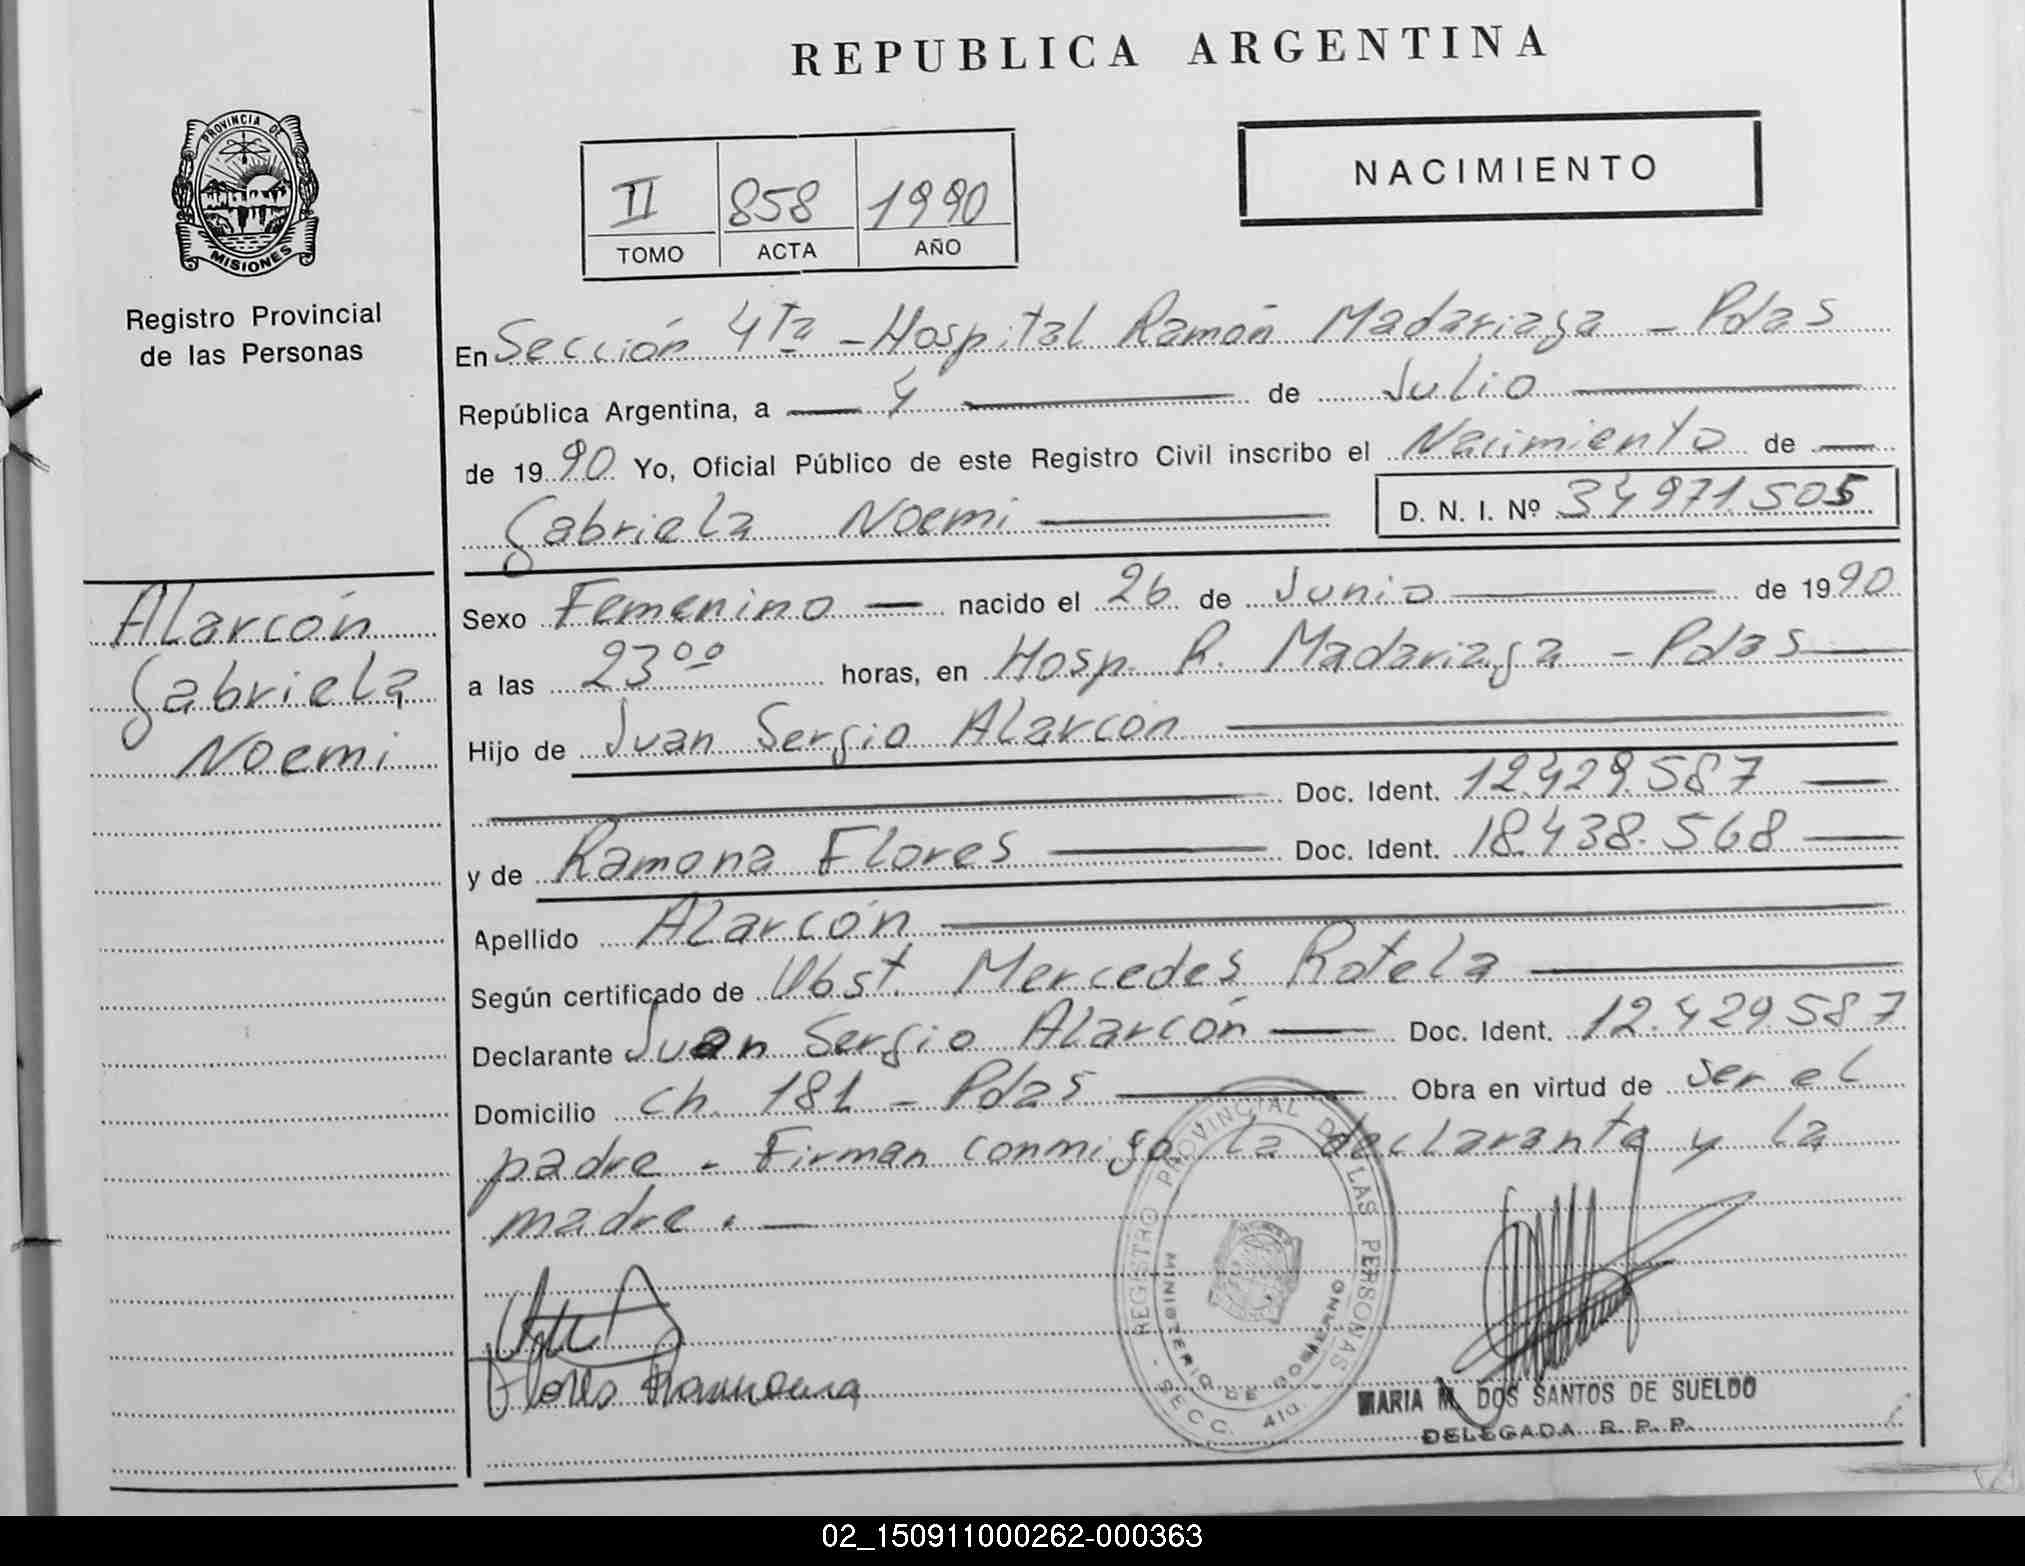 REPUBLICA ARGENTINA
PROVINCIA DE
MISIONES
Registro Provincial
de las Personas
II 858 1990
TOMO ACTA AÑO
NACIMIENTO
En Sección 4ta - Hospital Ramón Madariaga - Pdas
República Argentina, a 4 de Julio
de 1990 Yo, Oficial Público de este Registro Civil inscribo el Nacimiento de
Gabriela Noemi D. N. I. Nº 34971.505
Alarcón
Gabriela
Noemi
Sexo Femenino nacido el 26 de Junio de 1990
a las 23⁰⁰ horas, en Hosp. R. Madariaga - Pdas
Hijo de Juan Sergio Alarcon
Doc. Ident. 12.429.587
y de Ramona Flores Doc. Ident. 18.438.568
Apellido Alarcón
Según certificado de Obst. Mercedes Rotela
Declarante Juan Sergio Alarcón Doc. Ident. 12.429.587
Domicilio Ch. 181 - Pdas Obra en virtud de ser el
padre - Firman conmigo la declarante y la
madre. -
REGISTRO PROVINCIAL DE LAS PERSONAS
MINISTERIO DE GOBIERNO
- SECC. 4ta. -
Flores Ramona
MARIA M. DOS SANTOS DE SUELDO
DELEGADA R. P. P.
02_150911000262-000363